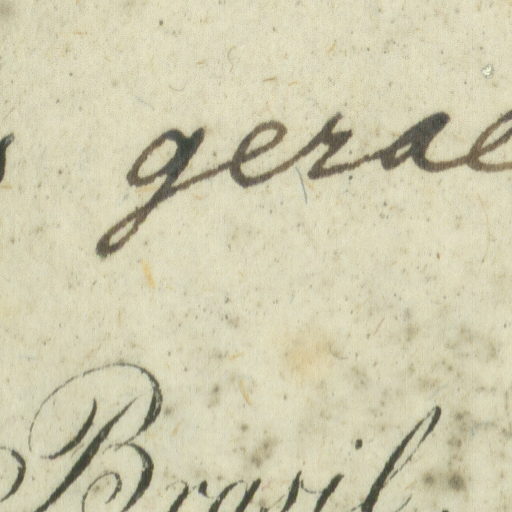 gerae
Brasil.